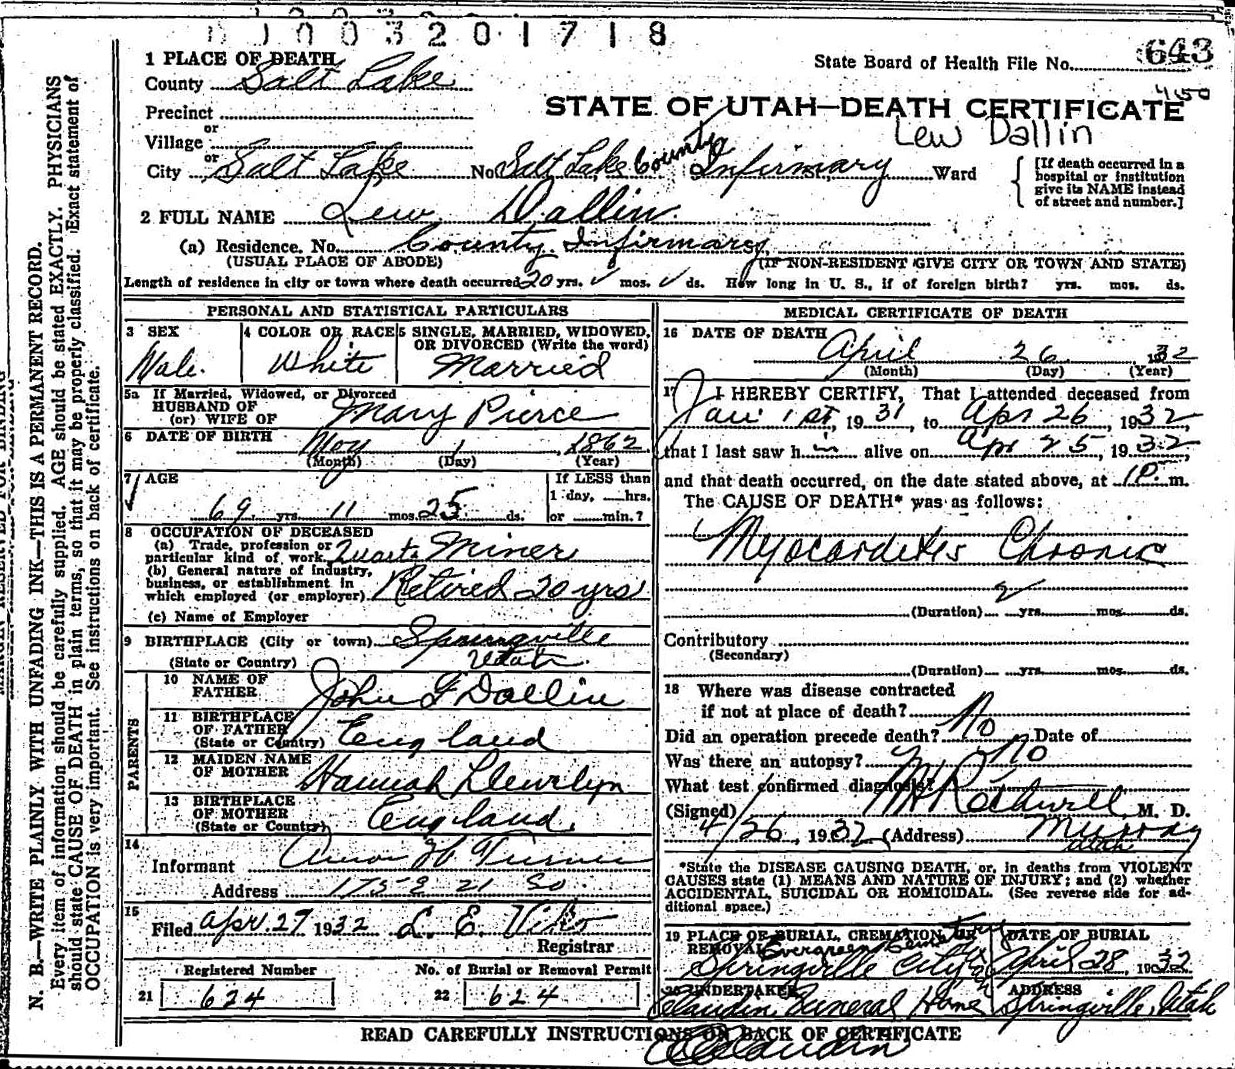 0 1 0 0 3 2 0 1 7 1 8
1 PLACE OF DEATH
County Salt Lake
State Board of Health File No. 643
450
Precinct
STATE OF UTAH—DEATH CERTIFICATE
Lew Dallin
or
Village
or
City Salt Lake No. Salt Lake County Infirmary Ward
[If death occurred in a
hospital or institution
give its NAME instead
of street and number.]
2 FULL NAME Lew Dallin
(a) Residence. No. County Infirmary
(USUAL PLACE OF ABODE) (IF NON-RESIDENT GIVE CITY OR TOWN AND STATE)
Length of residence in city or town where death occurred 20 yrs. ✓ mos. ✓ ds. How long in U. S., if of foreign birth? yrs. mos. ds.
PERSONAL AND STATISTICAL PARTICULARS
3 SEX
Male
4 COLOR OR RACE
White
5 SINGLE, MARRIED, WIDOWED,
OR DIVORCED (Write the word)
Married
5a If Married, Widowed, or Divorced
HUSBAND OF
(or) WIFE OF
Mary Pierce
6 DATE OF BIRTH May 1, 1862
(Month) (Day) (Year)
7 AGE
69 yrs. 11 mos. 25 ds.
If LESS than
1 day, hrs.
or min.?
8 OCCUPATION OF DECEASED
(a) Trade, profession or
particular kind of work Quartz Miner
(b) General nature of industry,
business, or establishment in
which employed (or employer) Retired 20 yrs
(c) Name of Employer
9 BIRTHPLACE (City or town) Springville
(State or Country) Utah
PARENTS
10 NAME OF
FATHER John F Dallin
11 BIRTHPLACE
OF FATHER
(State or Country) England
12 MAIDEN NAME
OF MOTHER Hannah Llewelyn
13 BIRTHPLACE
OF MOTHER
(State or Country) England
14
Informant H Turner
Address 175 E 21 So.
15
Filed Apr. 27 1932 L. E. Viko
Registrar
Registered Number
21 624
No. of Burial or Removal Permit
22 624
MEDICAL CERTIFICATE OF DEATH
16 DATE OF DEATH
April 26, 1932
(Month) (Day) (Year)
17 I HEREBY CERTIFY, That I attended deceased from
Jan 1st, 1931, to Apr 26, 1932,
that I last saw him alive on Apr 25, 1932,
and that death occurred, on the date stated above, at m.
The CAUSE OF DEATH* was as follows:
Myocarditis Chronic
(Duration) 2 yrs. mos. ds.
Contributory
(Secondary)
(Duration) yrs. mos. ds.
18 Where was disease contracted
if not at place of death?
Did an operation precede death? No Date of
Was there an autopsy? No
What test confirmed diagnosis?
(Signed) Rothwell, M. D.
4/26, 1932 (Address) Murray
Utah
*State the DISEASE CAUSING DEATH, or, in deaths from VIOLENT
CAUSES state (1) MEANS AND NATURE OF INJURY; and (2) whether
ACCIDENTAL, SUICIDAL OR HOMICIDAL. (See reverse side for ad-
ditional space.)
19 PLACE OF BURIAL, CREMATION, OR
REMOVAL Evergreen Cemetery
Springville City
DATE OF BURIAL
April 28, 1932
20 UNDERTAKER
Claudin Funeral Home
ADDRESS
Springville, Utah
READ CAREFULLY INSTRUCTIONS ON BACK OF CERTIFICATE
Claudin
N. B.—WRITE PLAINLY WITH UNFADING INK—THIS IS A PERMANENT RECORD.
Every item of information should be carefully supplied. AGE should be stated EXACTLY. PHYSICIANS
should state CAUSE OF DEATH in plain terms, so that it may be properly classified. Exact statement of
OCCUPATION is very important. See instructions on back of certificate.